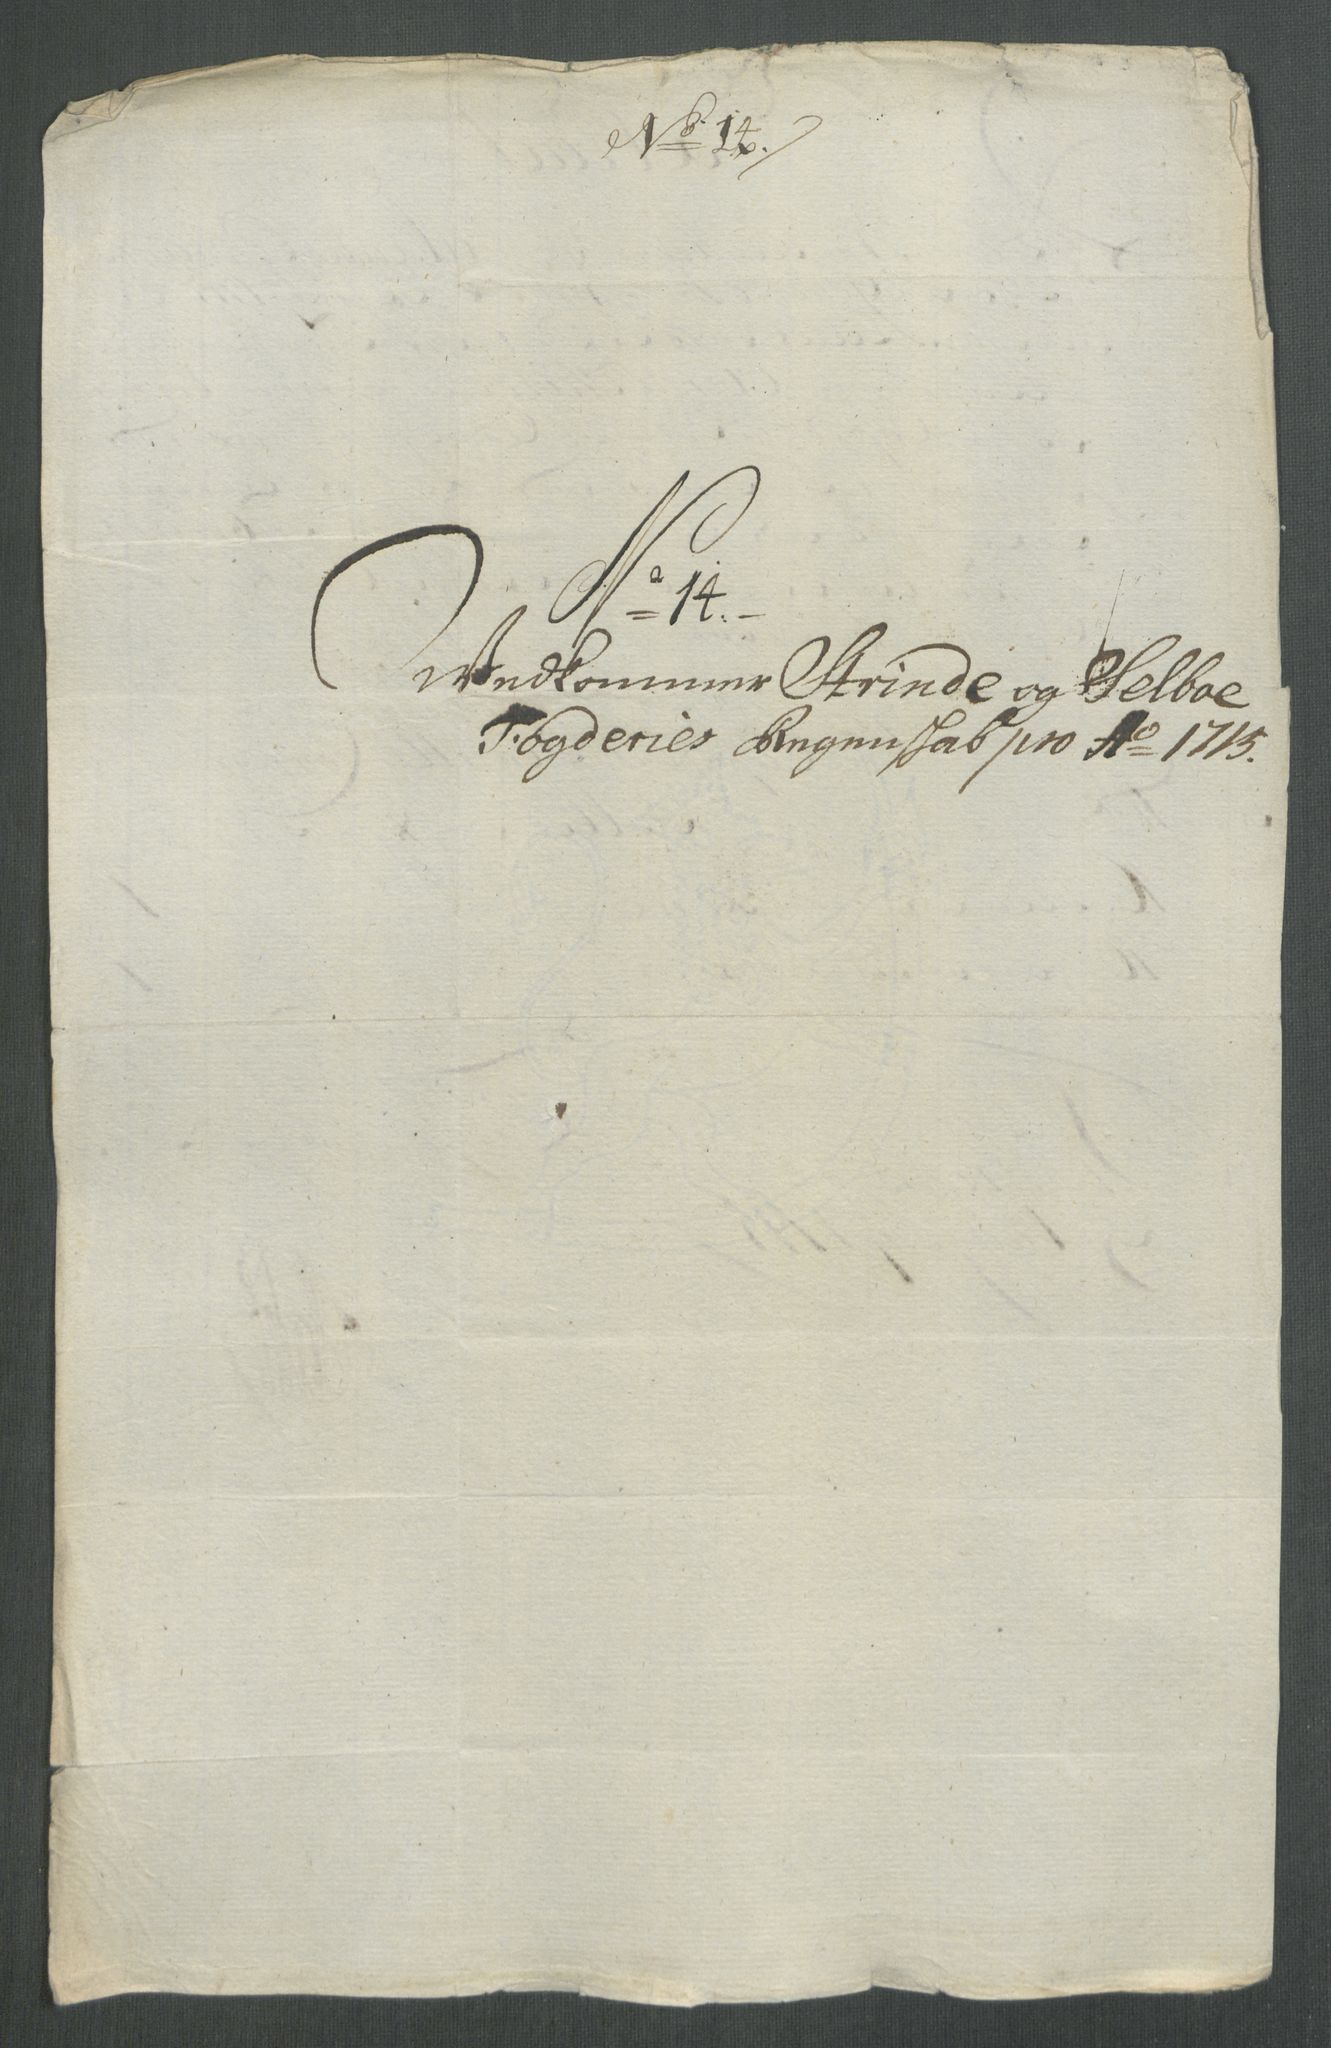 No 14.
No 14.
Vedkommer Strinde og Selboe
Fogderies Regenskab pro Ao 1715.